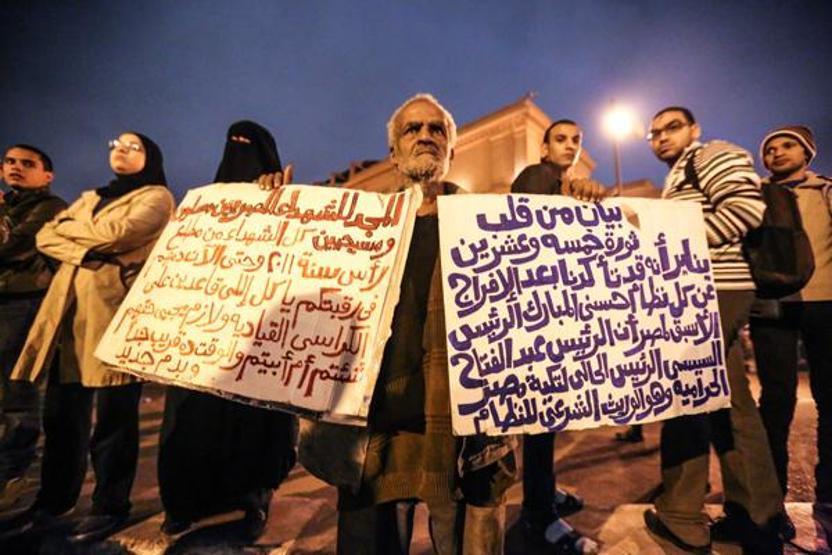 بيان من قلب
ثورة خمسه وعشرين
يناير أنه قد تأكدنا بعد الإفراج
عن كل نظام حسني المبارك الرئيس
الأسبق لمصر أن الرئيس عبد الفتاح
السيسي الرئيس الحالي لتكية مصر
الحراميه وهو الوريث الشرعي للنظام
المجد للشهداء المصريين مسلمين
ومسيحيين كل الشهداء من مطلع
لأس سنة ٢٠١١ وحتى الآن دمهم
في رقبتكم يا كل إللي قاعدين على
الكراسي القياديه ولازم يجي حقهم
شئتم أم أبيتم والوقت ده قريب جداً
وبدم جديد